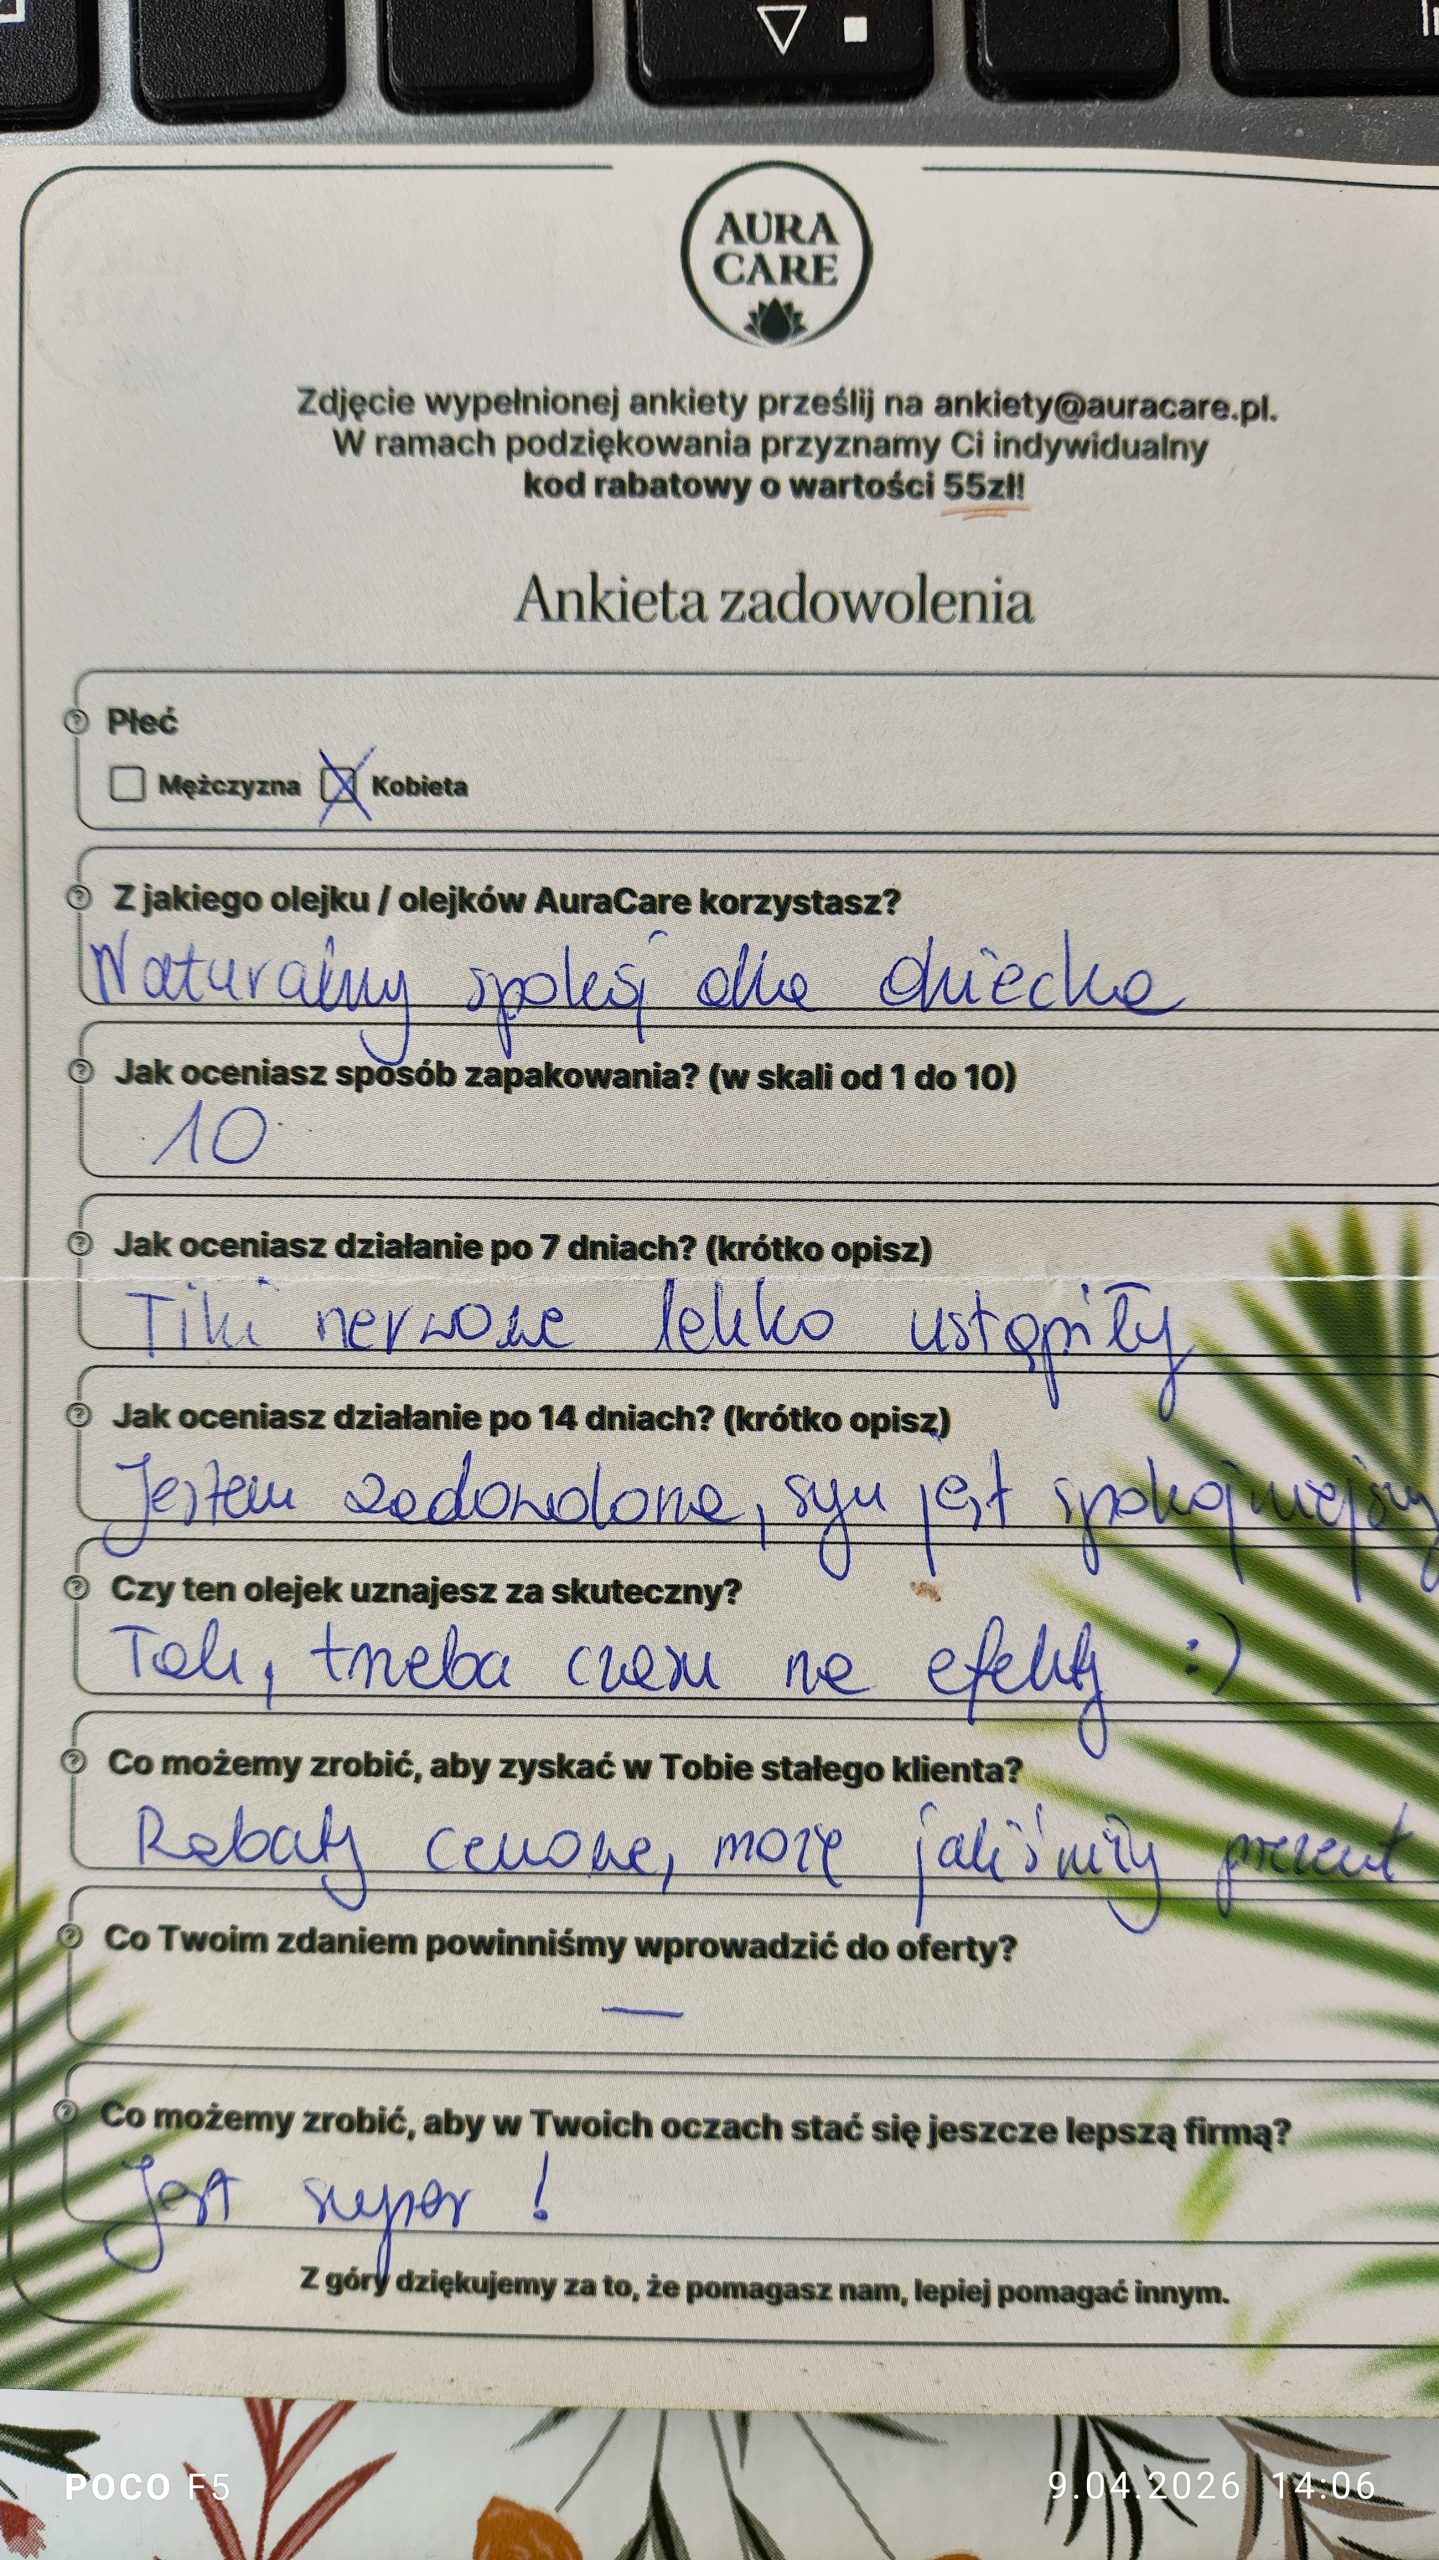 AURA
CARE
Zdjęcie wypełnionej ankiety prześlij na ankiety@auracare.pl.
W ramach podziękowania przyznamy Ci indywidualny
kod rabatowy o wartości 55zł!
Ankieta zadowolenia
Płeć
Mężczyzna Kobieta
Z jakiego olejku / olejków AuraCare korzystasz?
Naturalny spokój dla dziecka
Jak oceniasz sposób zapakowania? (w skali od 1 do 10)
10
Jak oceniasz działanie po 7 dniach? (krótko opisz)
Tiki nerwowe lekko ustąpiły
Jak oceniasz działanie po 14 dniach? (krótko opisz)
Jestem zadowolona, syn jest spokojniejszy
Czy ten olejek uznajesz za skuteczny?
Tak, trzeba czasu na efekty :)
Co możemy zrobić, aby zyskać w Tobie stałego klienta?
Rabaty cenowe, może jakiś miły prezent
Co Twoim zdaniem powinniśmy wprowadzić do oferty?
—
Co możemy zrobić, aby w Twoich oczach stać się jeszcze lepszą firmą?
Jest super!
Z góry dziękujemy za to, że pomagasz nam, lepiej pomagać innym.
POCO F5 9.04.2026 14:06